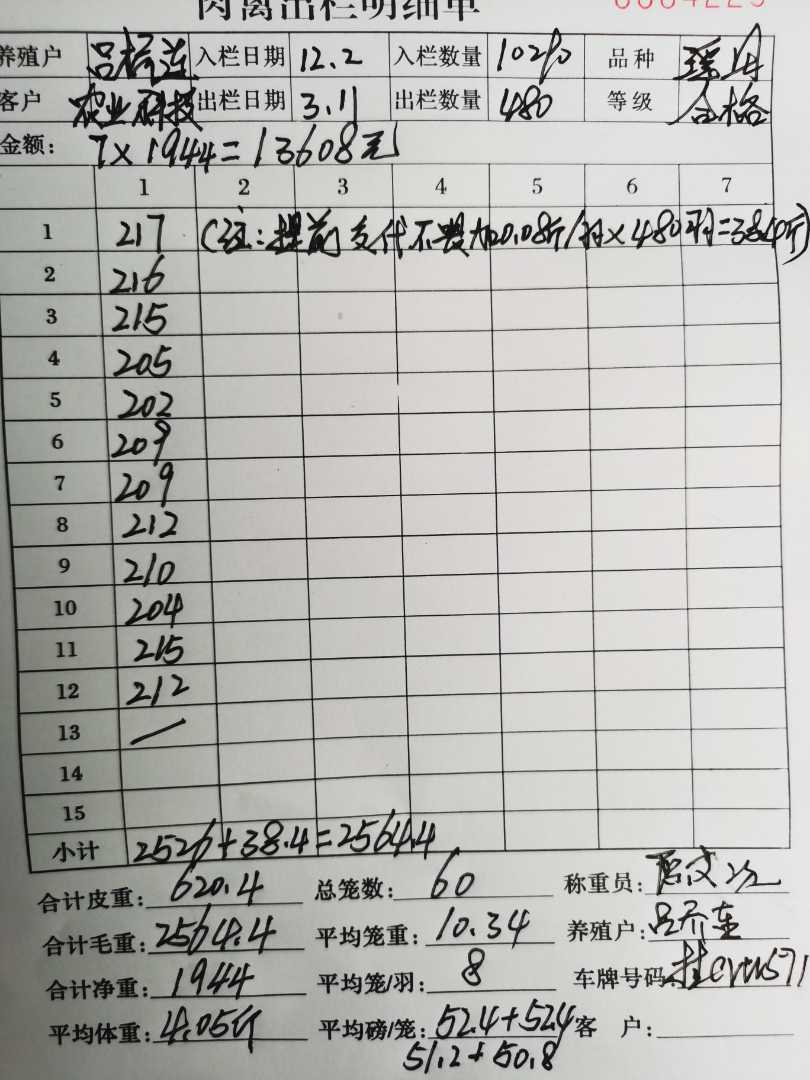 肉禽出栏明细单
养殖户 入栏日期 12.2 入栏数量 10290 品种
客户 农业科技 出栏日期 3.11 出栏数量 480 等级 合格
金额: 7×1944=13608元
1 2 3 4 5 6 7
1 217 (注:提前支付不喂料0.08斤/羽×480羽=38.4斤)
2 216
3 215
4 205
5 202
6 209
7 209
8 212
9 210
10 204
11 215
12 212
13 —
14
15
小计 2526+38.4=2564.4
合计皮重: 620.4 总笼数: 60 称重员:
合计毛重: 2564.4 平均笼重: 10.34 养殖户:
合计净重: 1944 平均笼/羽: 8 车牌号码:
平均体重: 4.05斤 平均磅/笼: 52.4+52.4 客 户:
51.2+50.8